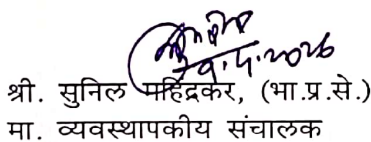 श्री. सुनिल महिंद्रकर, (भा.प्र.से.)
मा. व्यवस्थापकीय संचालक